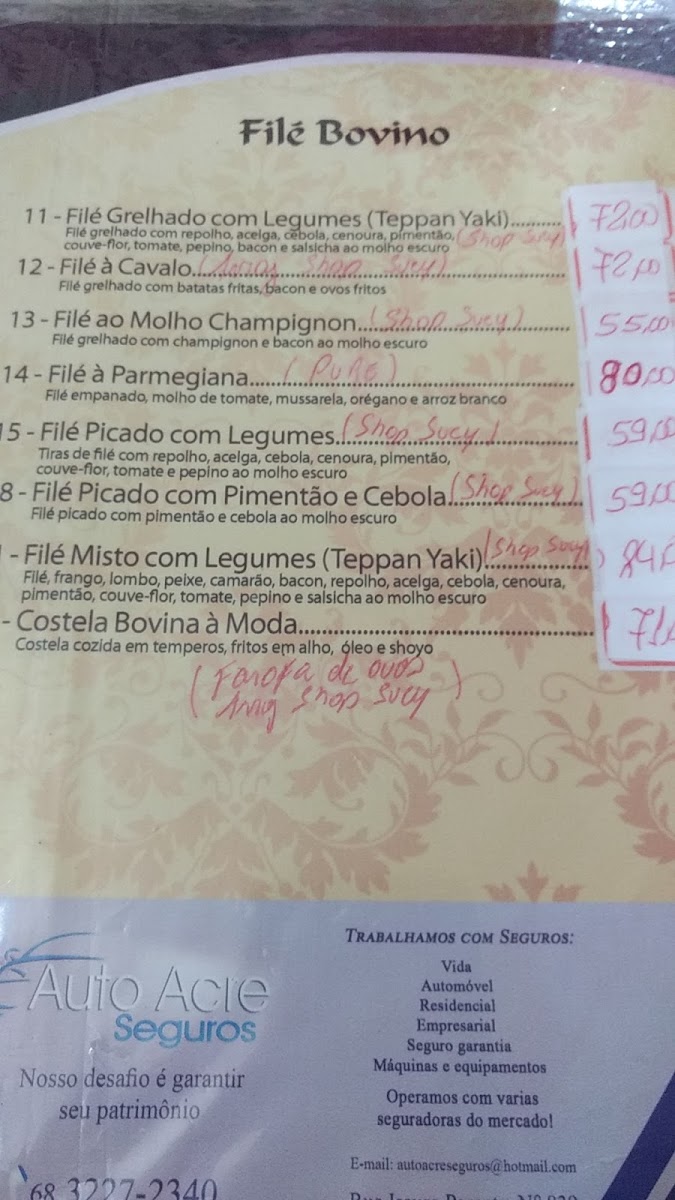 Filé Bovino
11 - Filé Grelhado com Legumes (Teppan Yaki).......... 72,00
Filé grelhado com repolho, acelga, cebola, cenoura, pimentão, (Shop Sucy)
couve-flor, tomate, pepino, bacon e salsicha ao molho escuro
12 - Filé à Cavalo...(Arroz Shop Sucy) 72,00
Filé grelhado com batatas fritas, bacon e ovos fritos
13 - Filé ao Molho Champignon...(Shop Sucy) 55,00
Filé grelhado com champignon e bacon ao molho escuro
14 - Filé à Parmegiana......(PURE) 80,00
Filé empanado, molho de tomate, mussarela, orégano e arroz branco
15 - Filé Picado com Legumes.(Shop Sucy) 59,00
Tiras de filé com repolho, acelga, cebola, cenoura, pimentão,
couve-flor, tomate e pepino ao molho escuro
8 - Filé Picado com Pimentão e Cebola (Shop Sucy) 59,00
Filé picado com pimentão e cebola ao molho escuro
- Filé Misto com Legumes (Teppan Yaki) (Shop Sucy) 84,
Filé, frango, lombo, peixe, camarão, bacon, repolho, acelga, cebola, cenoura,
pimentão, couve-flor, tomate, pepino e salsicha ao molho escuro
- Costela Bovina à Moda.......................................... 71,
Costela cozida em temperos, fritos em alho, óleo e shoyo
(Farofa de ovos
Shop Sucy)
Auto Acre
Seguros
Nosso desafio é garantir
seu patrimônio
68 3227-2340
Trabalhamos com Seguros:
Vida
Automóvel
Residencial
Empresarial
Seguro garantia
Máquinas e equipamentos
Operamos com varias
seguradoras do mercado!
E-mail: autoacreseguros@hotmail.com